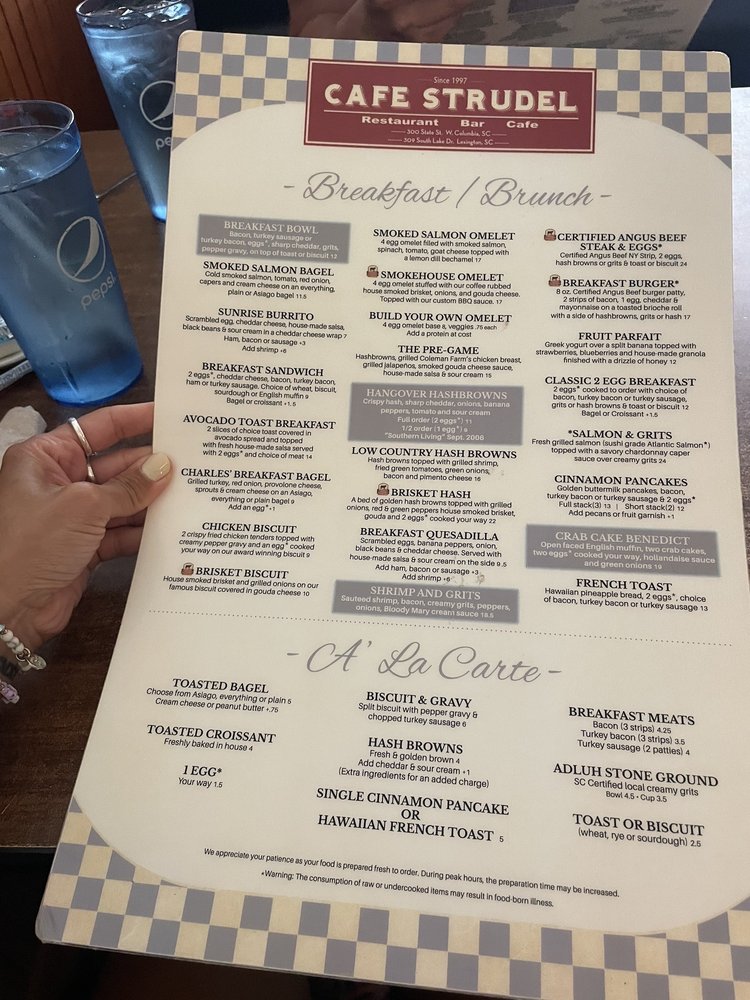 pepsi
pepsi
Since 1997
CAFE STRUDEL
Restaurant Bar Cafe
300 State St. W. Columbia, SC
309 South Lake Dr. Lexington, SC
- Breakfast / Brunch -
BREAKFAST BOWL
Bacon, turkey sausage or
turkey bacon, eggs*, sharp cheddar, grits,
pepper gravy, on top of toast or biscuit 12
SMOKED SALMON BAGEL
Cold smoked salmon, tomato, red onion,
capers and cream cheese on an everything,
plain or Asiago bagel 11.5
SUNRISE BURRITO
Scrambled egg, cheddar cheese, house-made salsa,
black beans & sour cream in a cheddar cheese wrap 7
Ham, bacon or sausage +3
Add shrimp +6
BREAKFAST SANDWICH
2 eggs*, cheddar cheese, bacon, turkey bacon,
ham or turkey sausage. Choice of wheat, biscuit,
sourdough or English muffin 9
Bagel or croissant +1.5
AVOCADO TOAST BREAKFAST
2 slices of choice toast covered in
avocado spread and topped
with fresh house-made salsa served
with 2 eggs* and choice of meat 14
CHARLES' BREAKFAST BAGEL
Grilled turkey, red onion, provolone cheese,
sprouts & cream cheese on an Asiago,
everything or plain bagel 9
Add an egg* +1
CHICKEN BISCUIT
2 crispy fried chicken tenders topped with
creamy pepper gravy and an egg* cooked
your way on our award winning biscuit 9
BRISKET BISCUIT
House smoked brisket and grilled onions on our
famous biscuit covered in gouda cheese 10
SMOKED SALMON OMELET
4 egg omelet filled with smoked salmon,
spinach, tomato, goat cheese topped with
a lemon dill bechamel 17
SMOKEHOUSE OMELET
4 egg omelet stuffed with our coffee rubbed
house smoked brisket, onions, and gouda cheese.
Topped with our custom BBQ sauce. 17
BUILD YOUR OWN OMELET
4 egg omelet base 8, veggies .75 each
Add a protein at cost
THE PRE-GAME
Hashbrowns, grilled Coleman Farm's chicken breast,
grilled jalapeños, smoked gouda cheese sauce,
house-made salsa & sour cream 15
HANGOVER HASHBROWNS
Crispy hash, sharp cheddar, onions, banana
peppers, tomato and sour cream
Full order (2 eggs*) 11
1/2 order (1 egg*) 9
"Southern Living" Sept. 2006
LOW COUNTRY HASH BROWNS
Hash browns topped with grilled shrimp,
fried green tomatoes, green onions,
bacon and pimento cheese 16
BRISKET HASH
A bed of golden hash browns topped with grilled
onions, red & green peppers house smoked brisket,
gouda and 2 eggs* cooked your way 22
BREAKFAST QUESADILLA
Scrambled eggs, banana peppers, onion,
black beans & cheddar cheese. Served with
house-made salsa & sour cream on the side 9.5
Add ham, bacon or sausage +3
Add shrimp +6
SHRIMP AND GRITS
Sauteed shrimp, bacon, creamy grits, peppers,
onions, Bloody Mary cream sauce 18.5
CERTIFIED ANGUS BEEF
STEAK & EGGS*
Certified Angus Beef NY Strip, 2 eggs,
hash browns or grits & toast or biscuit 24
BREAKFAST BURGER*
8 oz. Certified Angus Beef burger patty,
2 strips of bacon, 1 egg, cheddar &
mayonnaise on a toasted brioche roll
with a side of hashbrowns, grits or hash 17
FRUIT PARFAIT
Greek yogurt over a split banana topped with
strawberries, blueberries and house-made granola
finished with a drizzle of honey 12
CLASSIC 2 EGG BREAKFAST
2 eggs* cooked to order with choice of
bacon, turkey bacon or turkey sausage,
grits or hash browns & toast or biscuit 12
Bagel or Croissant +1.5
*SALMON & GRITS
Fresh grilled salmon (sushi grade Atlantic Salmon*)
topped with a savory chardonnay caper
sauce over creamy grits 24
CINNAMON PANCAKES
Golden buttermilk pancakes, bacon,
turkey bacon or turkey sausage & 2 eggs*
Full stack(3) 13 | Short stack(2) 12
Add pecans or fruit garnish +1
CRAB CAKE BENEDICT
Open faced English muffin, two crab cakes,
two eggs* cooked your way, hollandaise sauce
and green onions 19
FRENCH TOAST
Hawaiian pineapple bread, 2 eggs*, choice
of bacon, turkey bacon or turkey sausage 13
- A' La Carte -
TOASTED BAGEL
Choose from Asiago, everything or plain 5
Cream cheese or peanut butter +.75
TOASTED CROISSANT
Freshly baked in house 4
1 EGG*
Your way 1.5
BISCUIT & GRAVY
Split biscuit with pepper gravy &
chopped turkey sausage 6
HASH BROWNS
Fresh & golden brown 4
Add cheddar & sour cream +1
(Extra ingredients for an added charge)
SINGLE CINNAMON PANCAKE
OR
HAWAIIAN FRENCH TOAST 5
BREAKFAST MEATS
Bacon (3 strips) 4.25
Turkey bacon (3 strips) 3.5
Turkey sausage (2 patties) 4
ADLUH STONE GROUND
SC Certified local creamy grits
Bowl 4.5 • Cup 3.5
TOAST OR BISCUIT
(wheat, rye or sourdough) 2.5
We appreciate your patience as your food is prepared fresh to order. During peak hours, the preparation time may be increased.
*Warning: The consumption of raw or undercooked items may result in food-born illness.